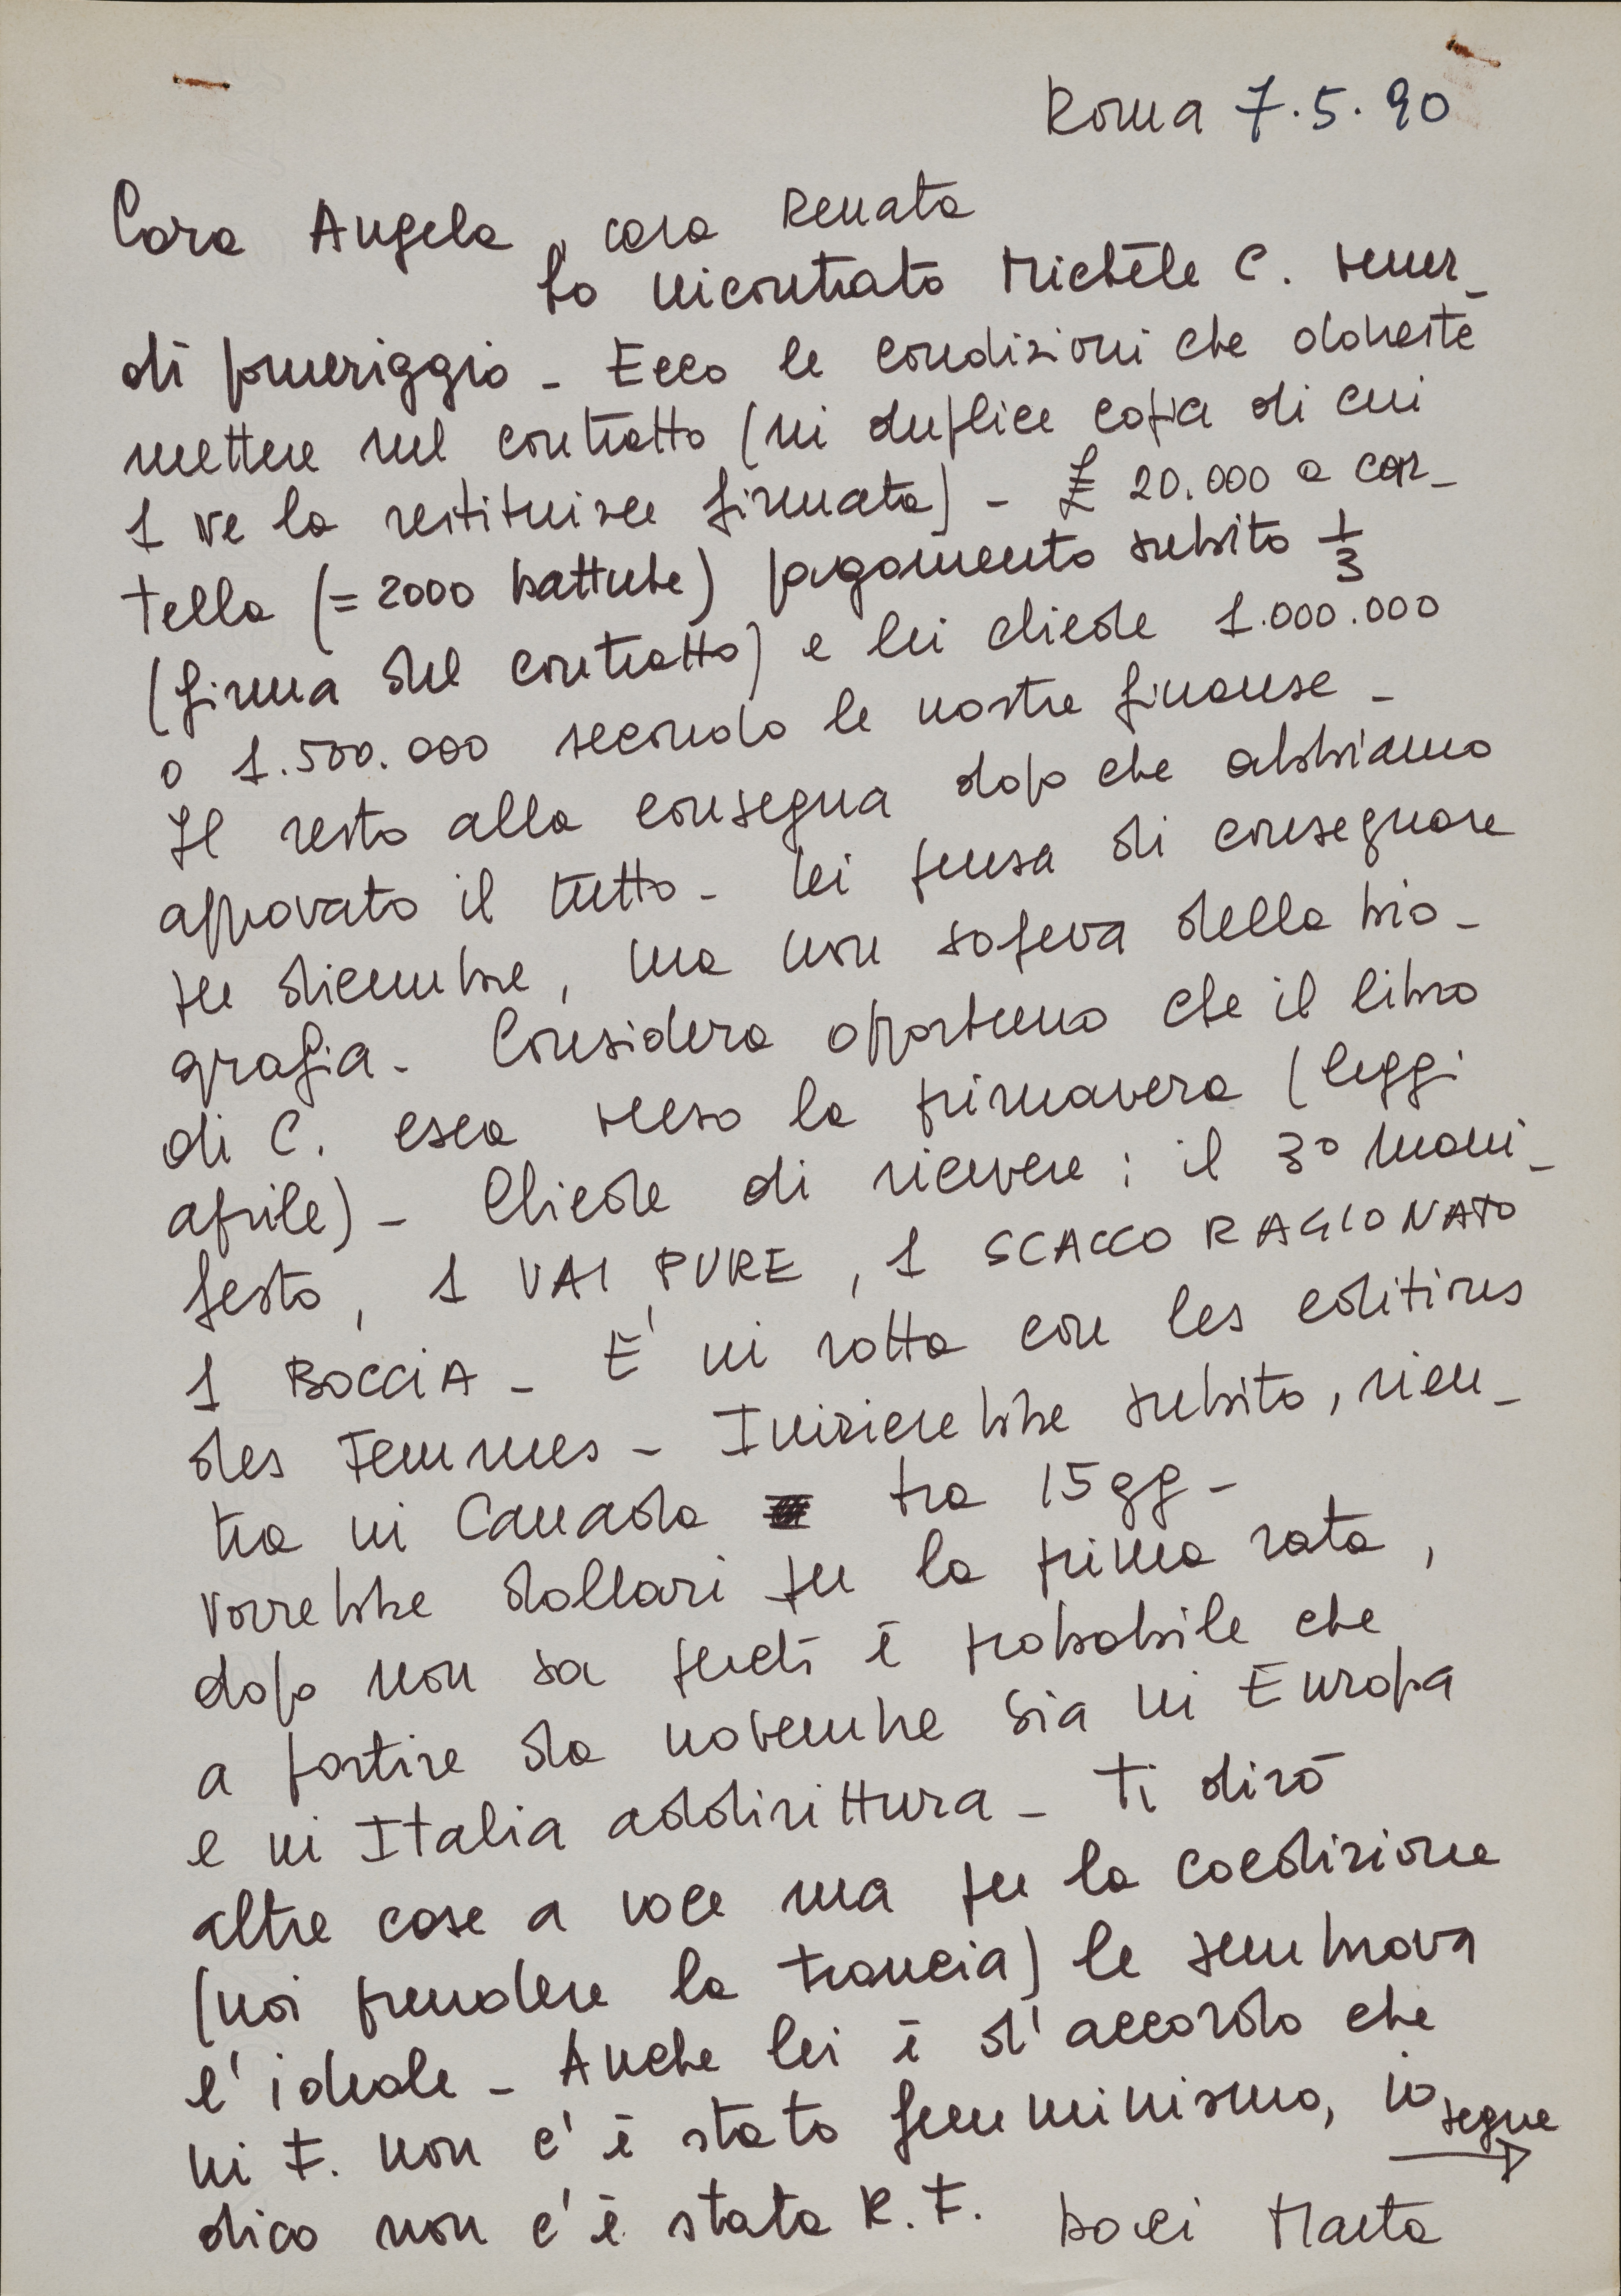 Roma 7.5.90
Cara Angela, cara Renata
ho incontrato Michèle C. vener_
dì pomeriggio - Ecco le condizioni che dovreste
mettere nel contratto (in duplice copia di cui
1 ve la restituisce firmata) - £ 20.000 a car_
tella (= 2000 battute) pagamento subito 1/3
(firma del contratto) e lei chiede 1.000.000
o 1.500.000 secondo le nostre finanze -
Il resto alla consegna dopo che abbiamo
approvato il tutto - Lei pensa di consegnare
per dicembre, ma non sapeva della bio-
grafia - Considera opportuno che il libro
di C. esca verso la primavera (leggi
aprile) - Chiede di ricevere: il 3° mani_
festo, 1 VAI PURE, 1 SCACCO RAGIONATO
1 BOCCIA - E' in rotta con les editions
des Femmes - Inizierebbe subito, rien_
tra in Canada tra 15 gg -
Vorrebbe dollari per la prima rata,
dopo non sa perché è probabile che
a partire da novembre sia in Europa
e in Italia addirittura - Ti dirò
altre cose a voce ma per la coedizione
(noi prendere la trancia) le sembrava
l'ideale - Anche lei è d'accordo che
in F. non c'è stato femminismo, io
segue
dico non c'è stata R. F. baci Marta